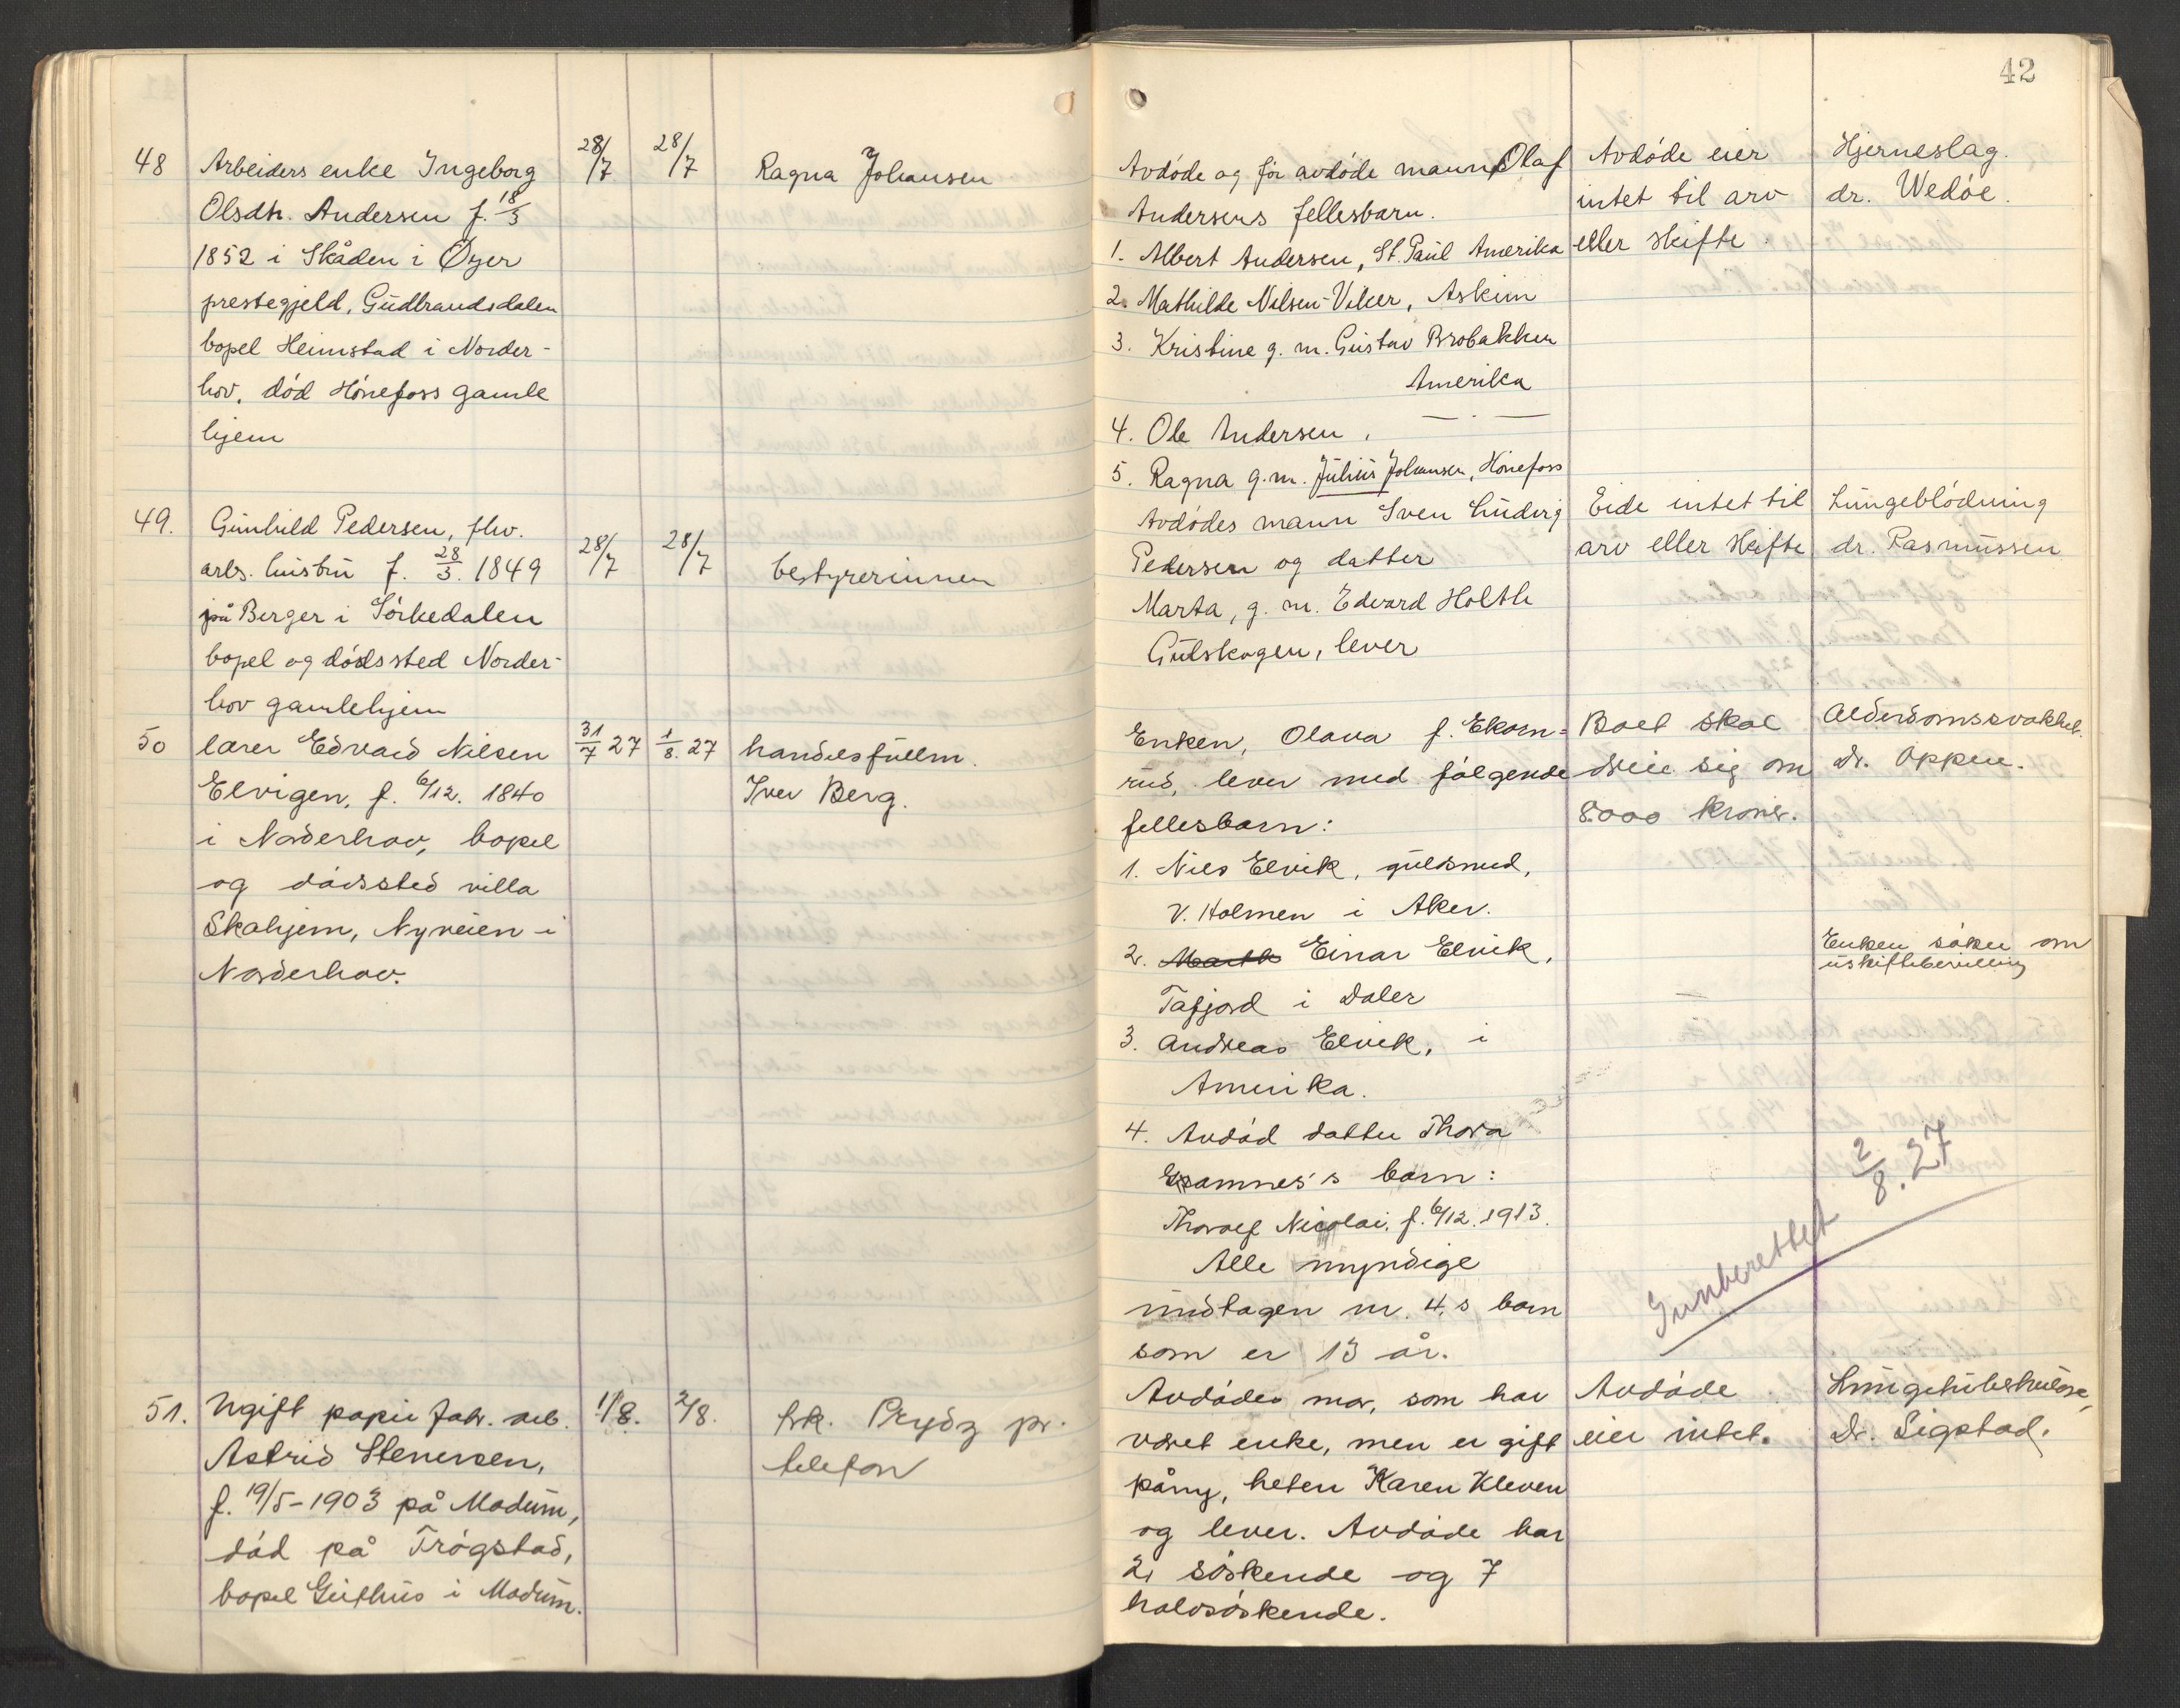 42
48
Arbeiders enke Ingeborg
Olsdtr. Andersen f. 18/3
1852 i Skåden i Øyer
prestegjeld, Gudbrandsdalen
bopel Heimstad i Norder-
hov, död Hönefoss gamle
hjem
28/7
28/7
Ragna Johansen
Avdöde og för avdöde mann Olaf
Andersens fellesbarn.
1. Albert Andersen, St. Paul Amerika
2. Mathilde Nilsen-Viker, Askim
3. Kristine g. m. Gustav Brobakken
Amerika
4. Ole Andersen, — " —
5. Ragna g. m. Julius Johansen, Hönefoss
Avdöde eier
intet til arv
eller skifte.
Hjerneslag.
dr. Wedöe.
49.
Gunhild Pedersen, fhv.
arb. hustru f. 28/3. 1849
på Berger i Sörkedalen
bopel og dödssted Norder-
hov gamlehjem
28/7
28/7
bestyrerinnen
Avdödes mann Sven Ludvig
Pedersen og datter
Marta, g. m. Edvard Holth
Gulskogen, lever
Eide intet til
arv eller skifte
Lungeblödning
dr. Rasmussen
50
lærer Edvard Nilsen
Elvigen, f. 6/12. 1840
i Norderhov, bopel
og dödssted villa
Skahjem, Nyveien i
Norderhov.
31/7 27
1/8. 27
handelsfullm.
Iver Berg.
Enken, Olava f. Ekorn=
rud, lever med fölgende
fellesbarn:
1. Nils Elvik, gullsmed,
V. Holmen i Aker.
2. Einar Elvik,
Tafjord i Daler
3. Andreas Elvik, i
Amerika.
4. Avdöd datter Thora
Gramnes's barn:
Thoralf Nicolai, f. 6/12. 1913.
Alle myndige
undtagen nr. 4,s barn
som er 13 år.
Boet skal
dreie sig om
8.000 kroner.
Alderdomssvakhet.
Dr. Oppen.
Enken söker om
uskiftebevilling
Innberettet 2/8. 27
51.
Ugift papirfabr. arb.
Astrid Stenersen,
f. 19/5-1903 på Modum,
död på Trögstad,
bopel Geithus i Modum.
1/8.
2/8.
frk. Prydz pr.
telefon
Avdödes mor, som har
været enke, men er gift
påny, heter Karen Kleven
og lever. Avdöde har
2 söskende og 7
halvsöskende.
Avdöde
eier intet.
Lungetuberkulose,
Dr. Sigstad.